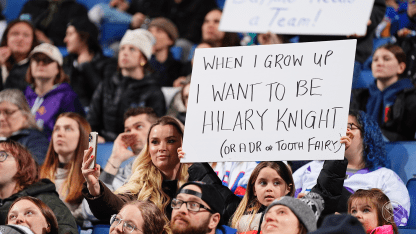 a Team!
WHEN I GROW UP
I WANT TO BE
HILARY KNIGHT
(OR A DR OR TOOTH FAIRY)